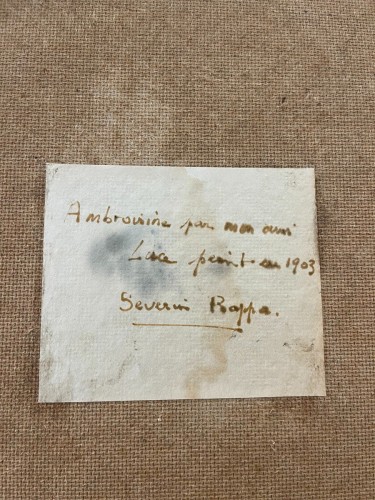 Ambroisine par mon ami
Lace peint en 1903
Severin Rappa.